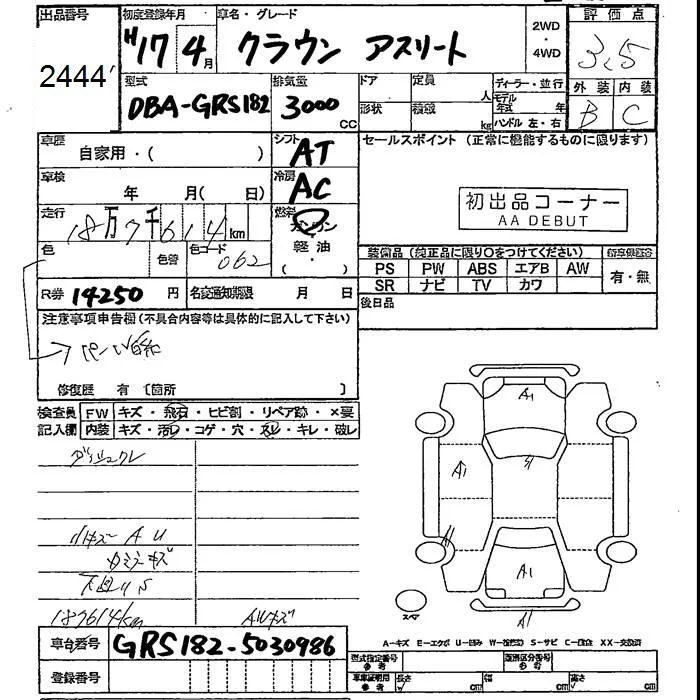 出品番号 初度登録年月 車名・グレード 2WD・4WD 評価点
2444 H17 4月 クラウン アスリート 3.5
型式 排気量 ドア 定員 人 ディーラー・並行 外装 内装
DBA-GRS182 3000 CC 形状 積載 kg モデル年式 年 ハンドル 左・右 B C
車歴 自家用・( ) シフト AT セールスポイント (正常に機能するものに限ります)
車検 年 月( 日) 冷房 AC
初出品コーナー
AA DEBUT
走行 18万7千614km 燃料 ガソリン
色 色替 色コード 062 軽油・( )
装備品(純正品に限り○をつけてください)
PS PW ABS エアB AW 有・無
SR ナビ TV カワ
R券 14250円 名変通知期限 月 日 後日品
注意事項申告欄(不具合内容等は具体的に記入して下さい)
修復歴 有 〔箇所 〕
検査員 FW キズ・飛石・ヒビ割・リペア跡・×要
記入欄 内装 キズ・汚レ・コゲ・穴・スレ・キレ・破レ
A1
A1
小キズ A U
A1
下回りS
187614km AWキズ
スペア
A1
A-キズ E-エクボ U-凹み S-サビ XX-交換済
車台番号 GRS182-5030986
型式指定番号 参考 類別区分番号 参考
登録番号 車庫証明用 参考 長さ cm 幅 cm 高さ cm